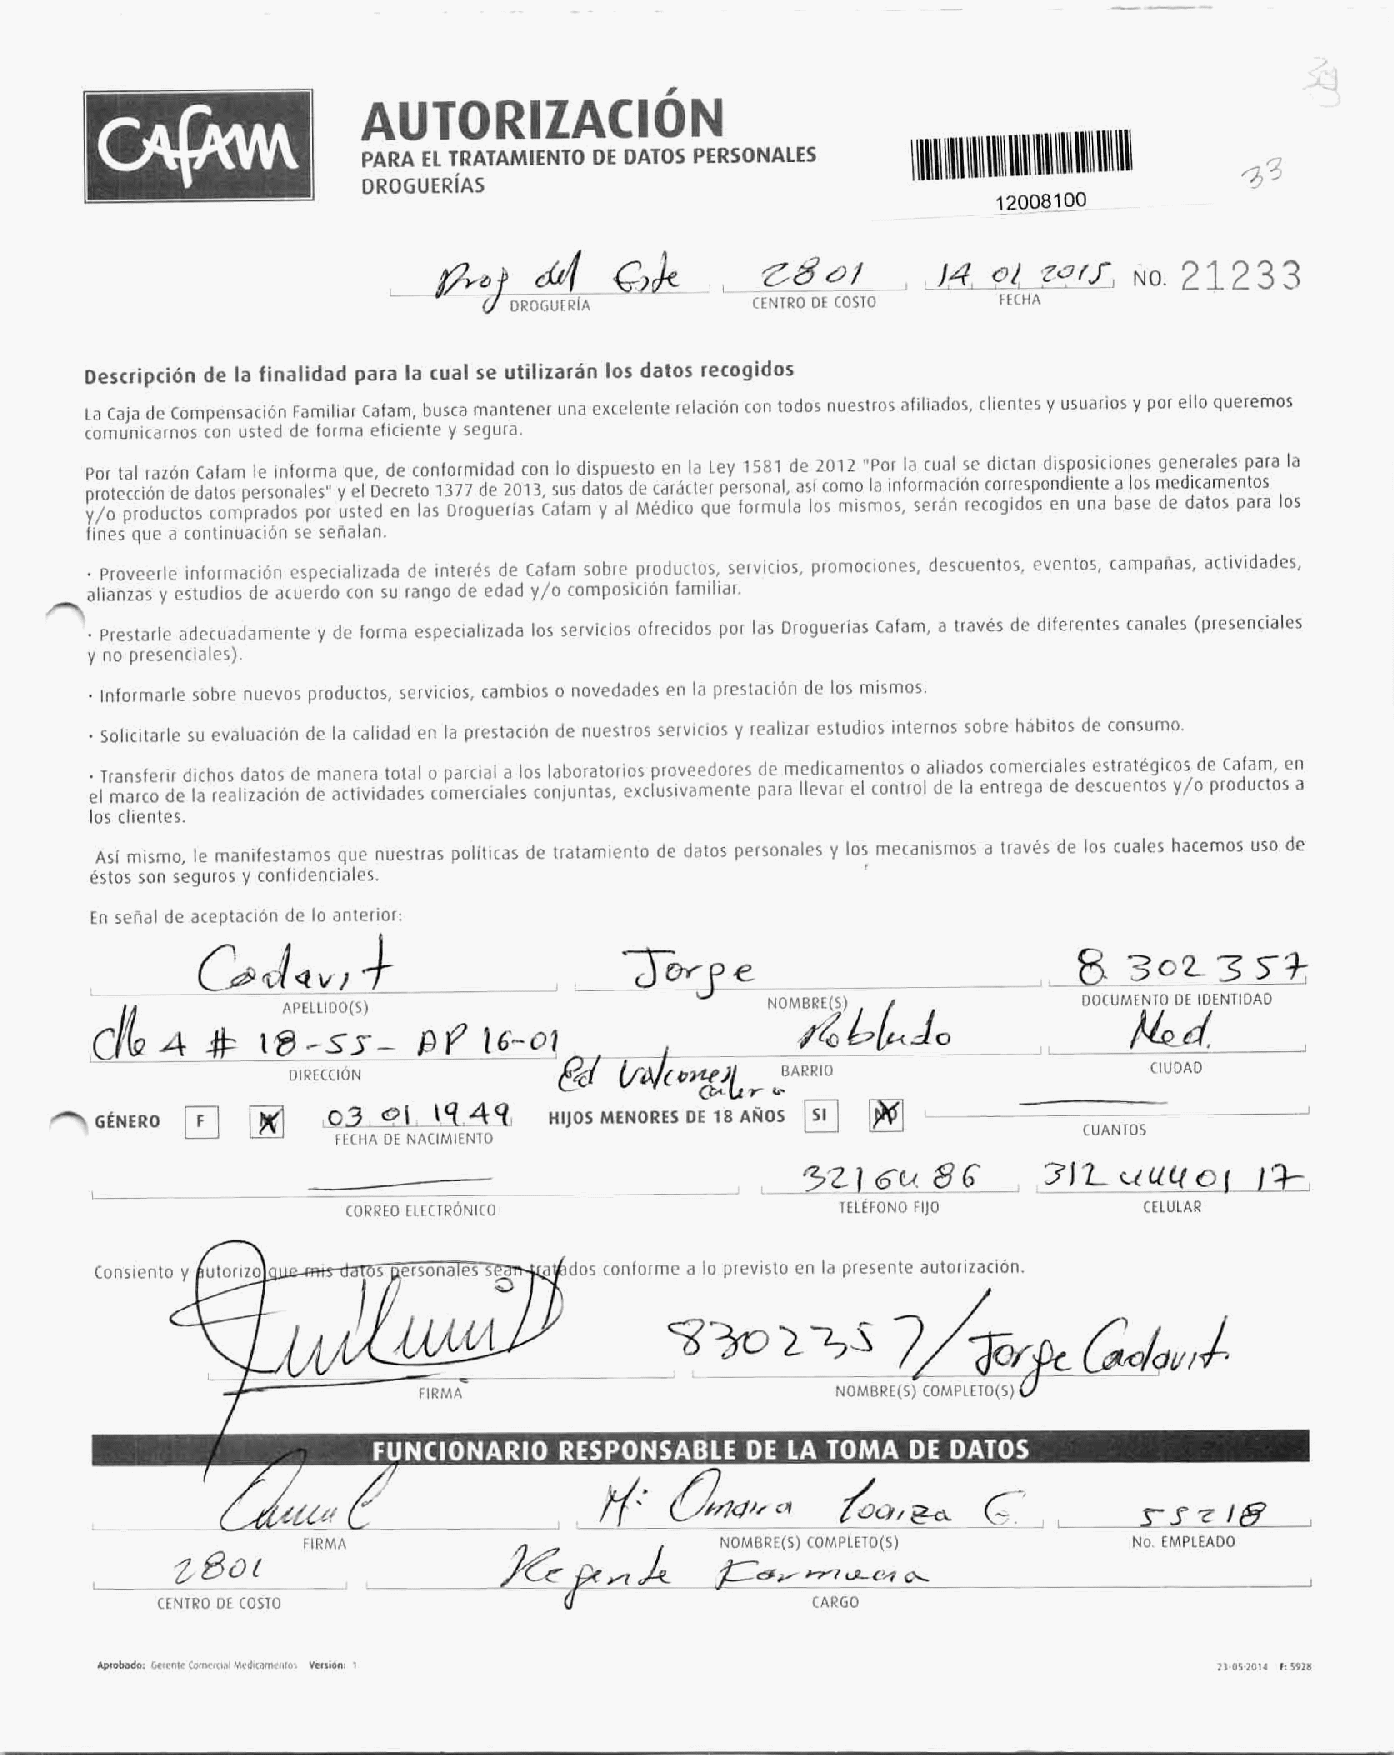 CAFAM
AUTORIZACIÓN
PARA EL TRATAMIENTO DE DATOS PERSONALES
DROGUERÍAS
12008100
33
Drog del Este 2801 14 01 2015 NO. 21233
DROGUERÍA CENTRO DE COSTO FECHA
Descripción de la finalidad para la cual se utilizarán los datos recogidos
La Caja de Compensación Familiar Cafam, busca mantener una excelente relación con todos nuestros afiliados, clientes y usuarios y por ello queremos
comunicarnos con usted de forma eficiente y segura.
Por tal razón Cafam le informa que, de conformidad con lo dispuesto en la Ley 1581 de 2012 "Por la cual se dictan disposiciones generales para la
protección de datos personales" y el Decreto 1377 de 2013, sus datos de carácter personal, así como la información correspondiente a los medicamentos
y/o productos comprados por usted en las Droguerías Cafam y al Médico que formula los mismos, serán recogidos en una base de datos para los
fines que a continuación se señalan.
· Proveerle información especializada de interés de Cafam sobre productos, servicios, promociones, descuentos, eventos, campañas, actividades,
alianzas y estudios de acuerdo con su rango de edad y/o composición familiar.
· Prestarle adecuadamente y de forma especializada los servicios ofrecidos por las Droguerías Cafam, a través de diferentes canales (presenciales
y no presenciales).
· Informarle sobre nuevos productos, servicios, cambios o novedades en la prestación de los mismos.
· Solicitarle su evaluación de la calidad en la prestación de nuestros servicios y realizar estudios internos sobre hábitos de consumo.
· Transferir dichos datos de manera total o parcial a los laboratorios proveedores de medicamentos o aliados comerciales estratégicos de Cafam, en
el marco de la realización de actividades comerciales conjuntas, exclusivamente para llevar el control de la entrega de descuentos y/o productos a
los clientes.
Así mismo, le manifestamos que nuestras políticas de tratamiento de datos personales y los mecanismos a través de los cuales hacemos uso de
éstos son seguros y confidenciales.
En señal de aceptación de lo anterior:
Cadavit Jorge 8 302 357
APELLIDO(S) NOMBRE(S) DOCUMENTO DE IDENTIDAD
Clle 4 # 18-55- AP 16-01 Robledo Med.
DIRECCIÓN Ed BARRIO CIUDAD
GÉNERO F 03 01 1949 HIJOS MENORES DE 18 AÑOS SI NO
FECHA DE NACIMIENTO CUANTOS
3216486 312 4440117
CORREO ELECTRÓNICO TELÉFONO FIJO CELULAR
Consiento y autorizo que mis datos personales sean tratados conforme a lo previsto en la presente autorización.
8302357/Jorge Cadavit.
FIRMA NOMBRE(S) COMPLETO(S)
FUNCIONARIO RESPONSABLE DE LA TOMA DE DATOS
Mª Omaira Loaiza G. 55218
FIRMA NOMBRE(S) COMPLETO(S) No. EMPLEADO
2801 Regente Farmacia
CENTRO DE COSTO CARGO
Aprobado: Gerente Comercial Medicamentos Versión: 1 23-05-2014 F: 5928